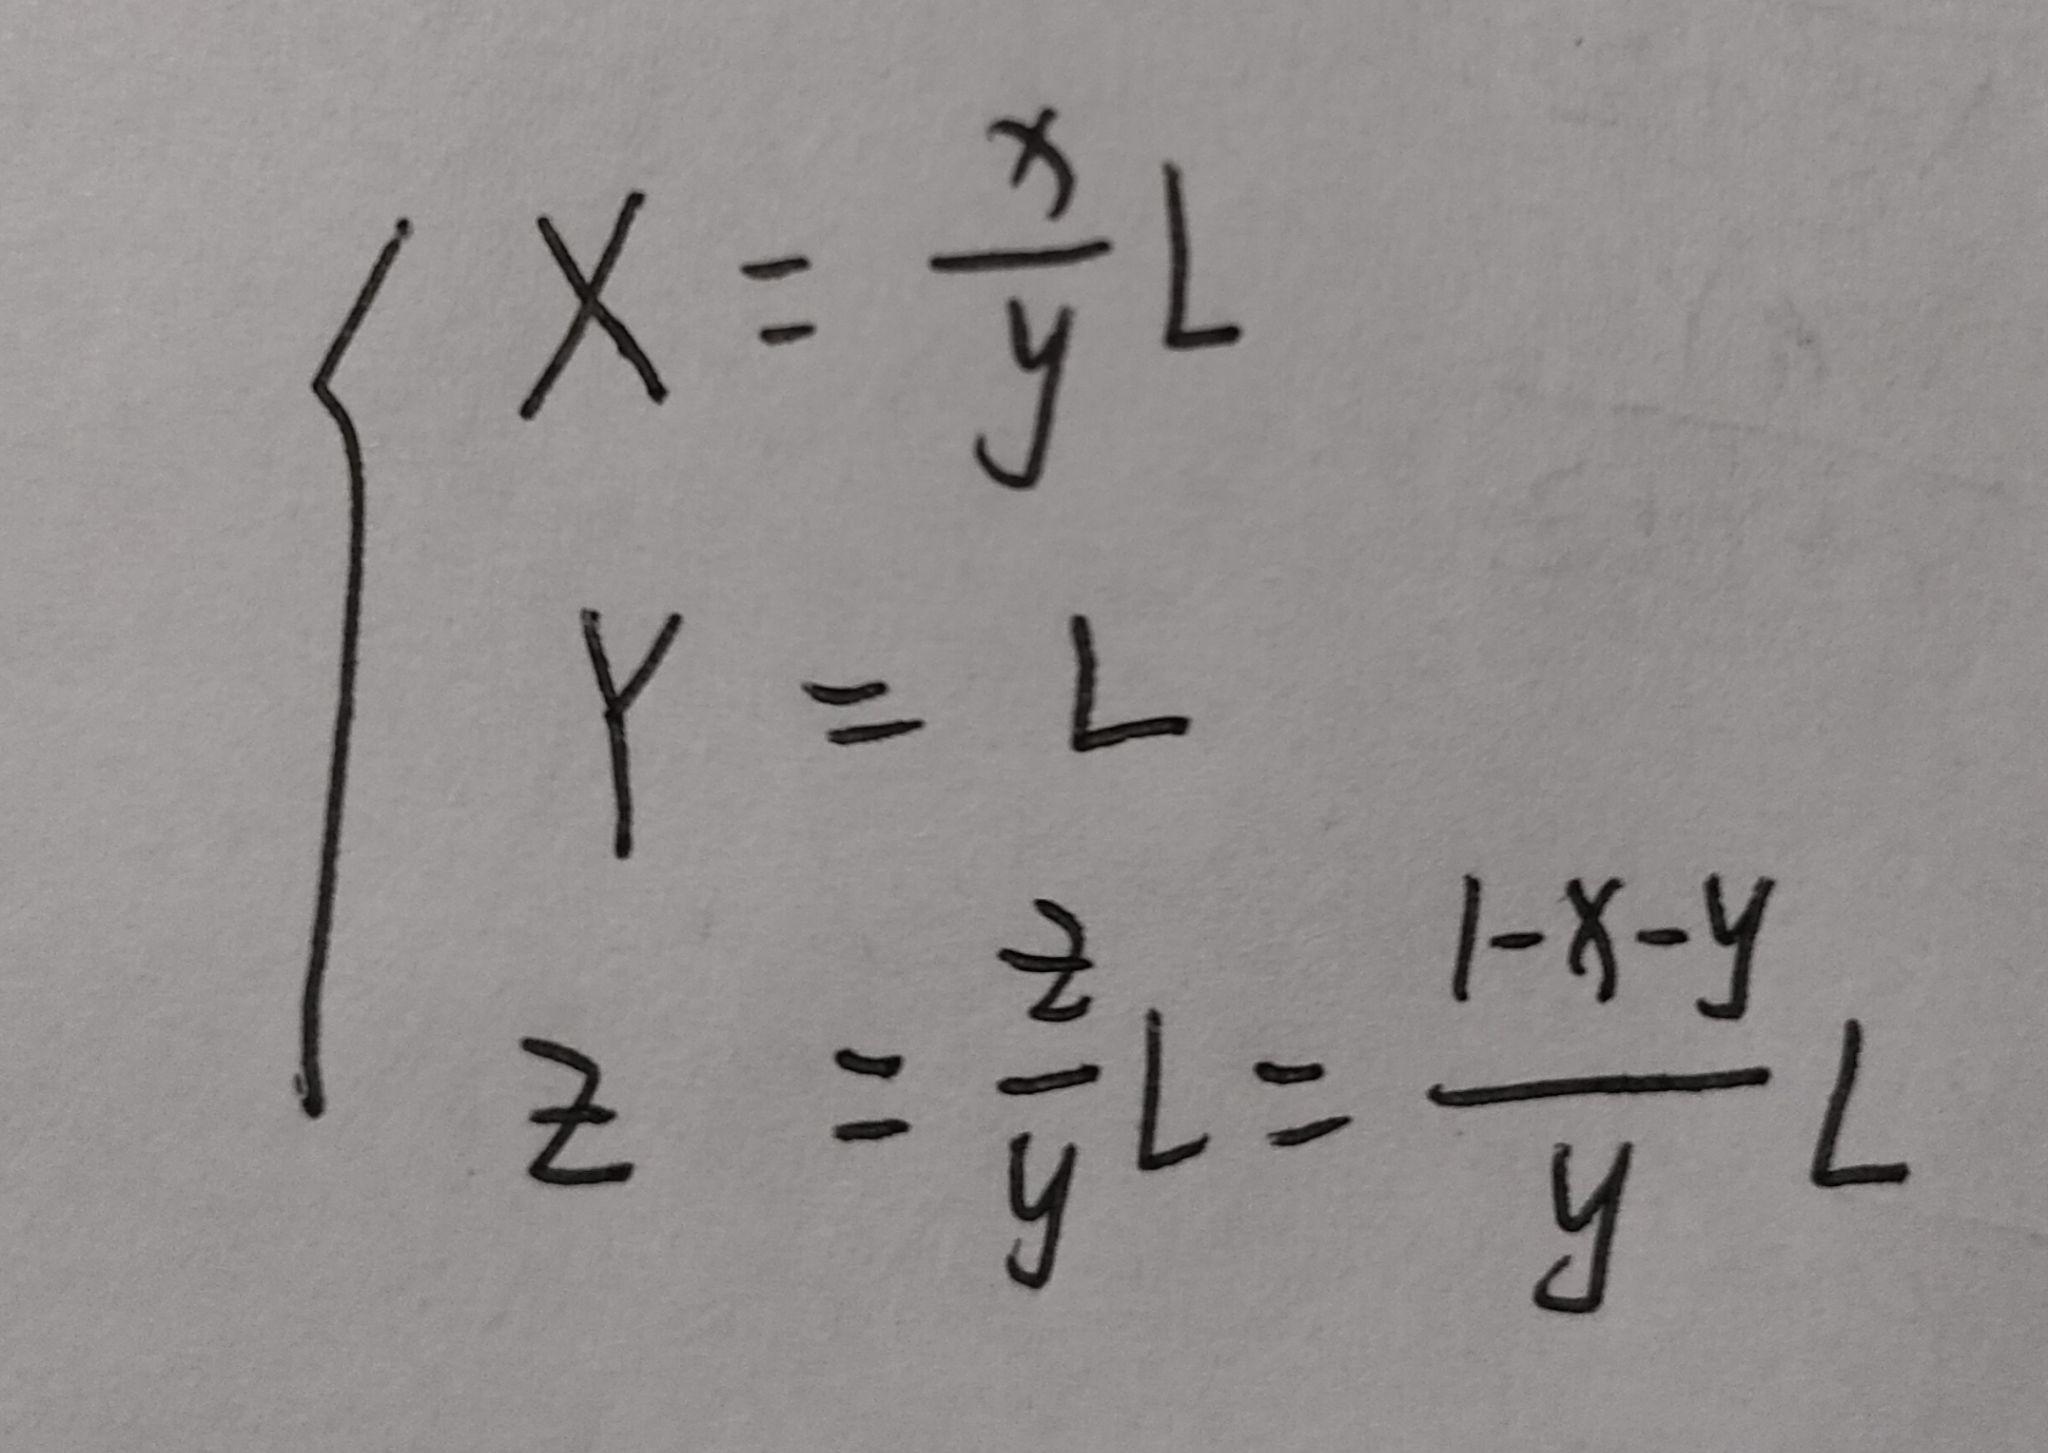 X = x/y L
Y = L
Z = z/y L = 1-x-y/y L